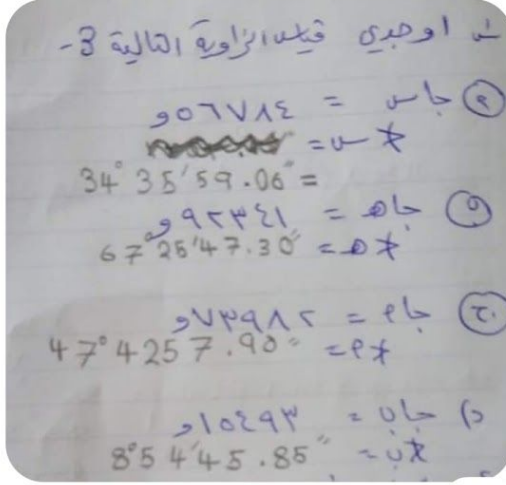 س اوجدي قياس الزاوية التالية 3-
(أ) جا س = ٥٦٧٨٤و
⦟ س =
= 34° 35' 59.06"
(ب) جا هـ = ٩٢٣٤١و
⦟ هـ = 67° 25' 47.30"
(ج) جا م = ٧٣٩٨٢و
⦟ م = 47° 42 57.90"
د) جا ب = ١٥٤٩٣و
⦟ ب = 8° 54' 45.85"